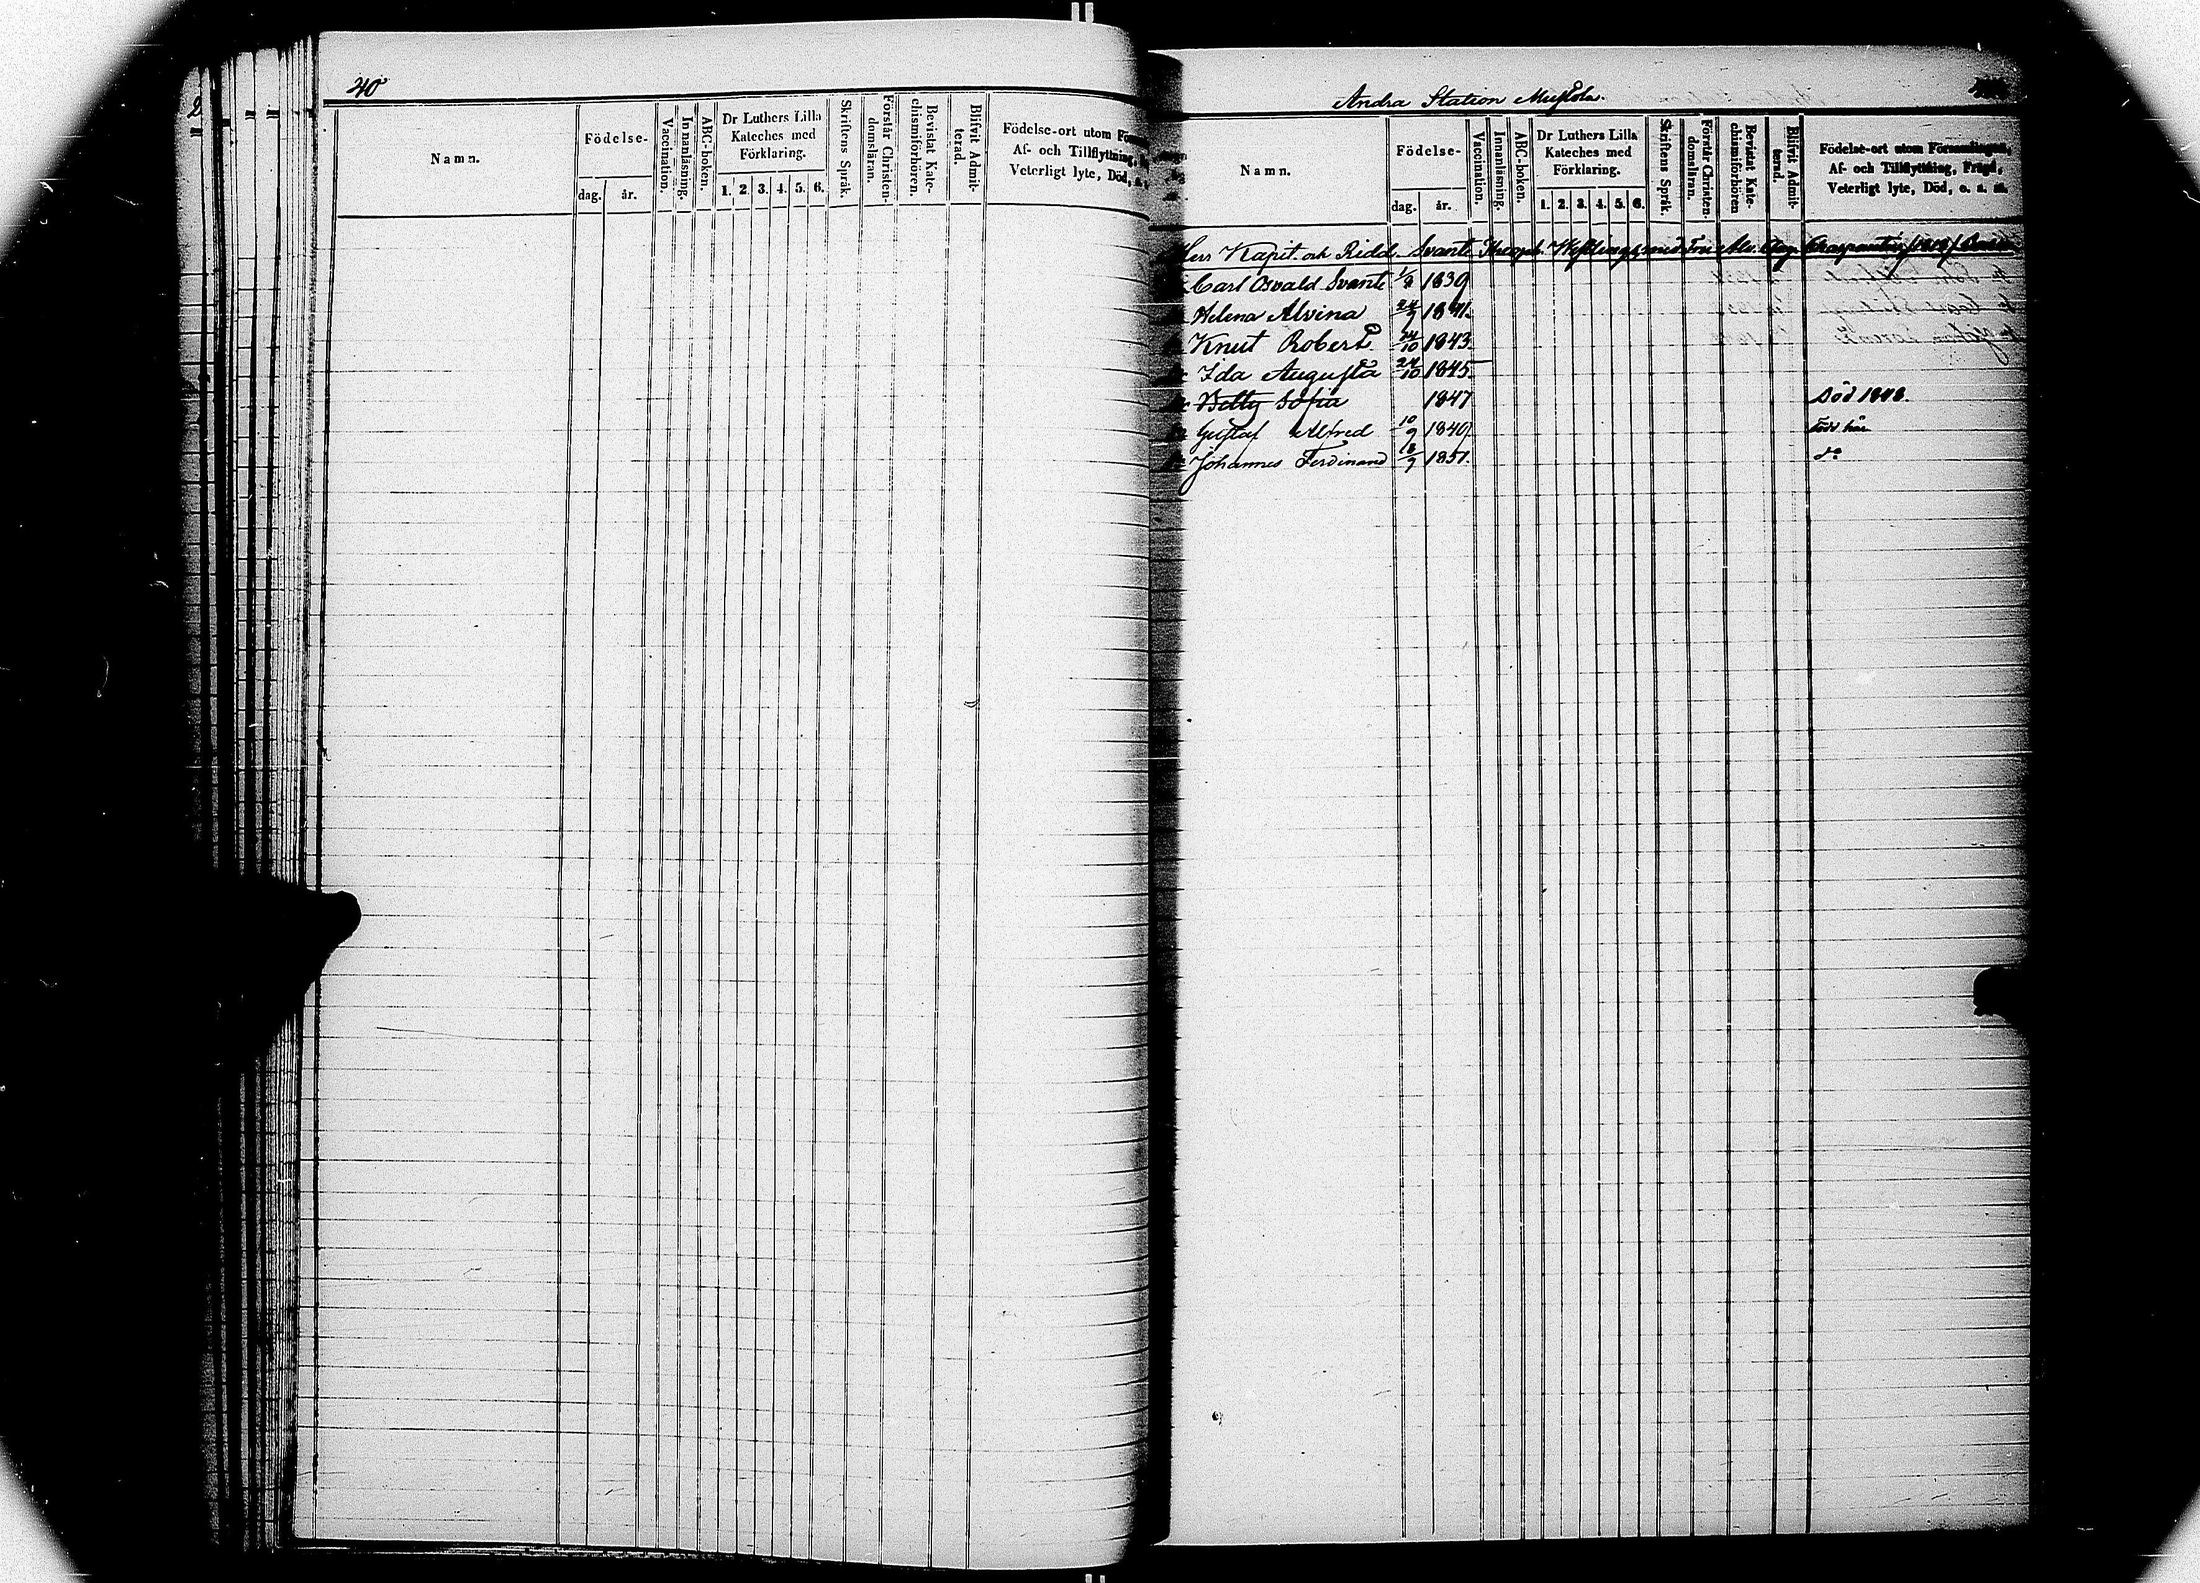 40
Namn.
Födelse-
dag. år.
Vaccination.
Innanläsning.
ABC-boken.
Dr Luthers Lilla
Kateches med
Förklaring.
1. 2. 3. 4. 5. 6.
Skriftens Språk.
Förstår Christen-
domsläran.
Bevistat Kate-
chismiförhören.
Blifvit Admit-
terad.
Födelse-ort utom
Af- och Tillflyttning,
Veterligt lyte, Död,
Andra Station Mustola.
Namn.
Födelse-
dag. år.
Vaccination.
Innanläsning.
ABC-boken.
Dr Luthers Lilla
Kateches med
Förklaring.
1. 2. 3. 4. 5. 6.
Skriftens Språk.
Förstår Christen-
domsläran.
Bevistat Kate-
chismiförhören
Blifvit Admit-
terad.
Födelse-ort utom Församlingen,
Af- och Tillflyttning, Frägd,
Veterligt lyte, Död, o. s. m.
Herr Kapit. och Ridd. Svante med Fru
Carl Osvald Svante 1839
Helena Alvina 24/9 1841.
Knut Robert 24/10 1843
Ida Augusta 24/10 1845
Betty Sofia 1847 Död 1848.
Gustaf Alfred 10/9 1849. Född här
Johannes Ferdinand 18/9 1851. do